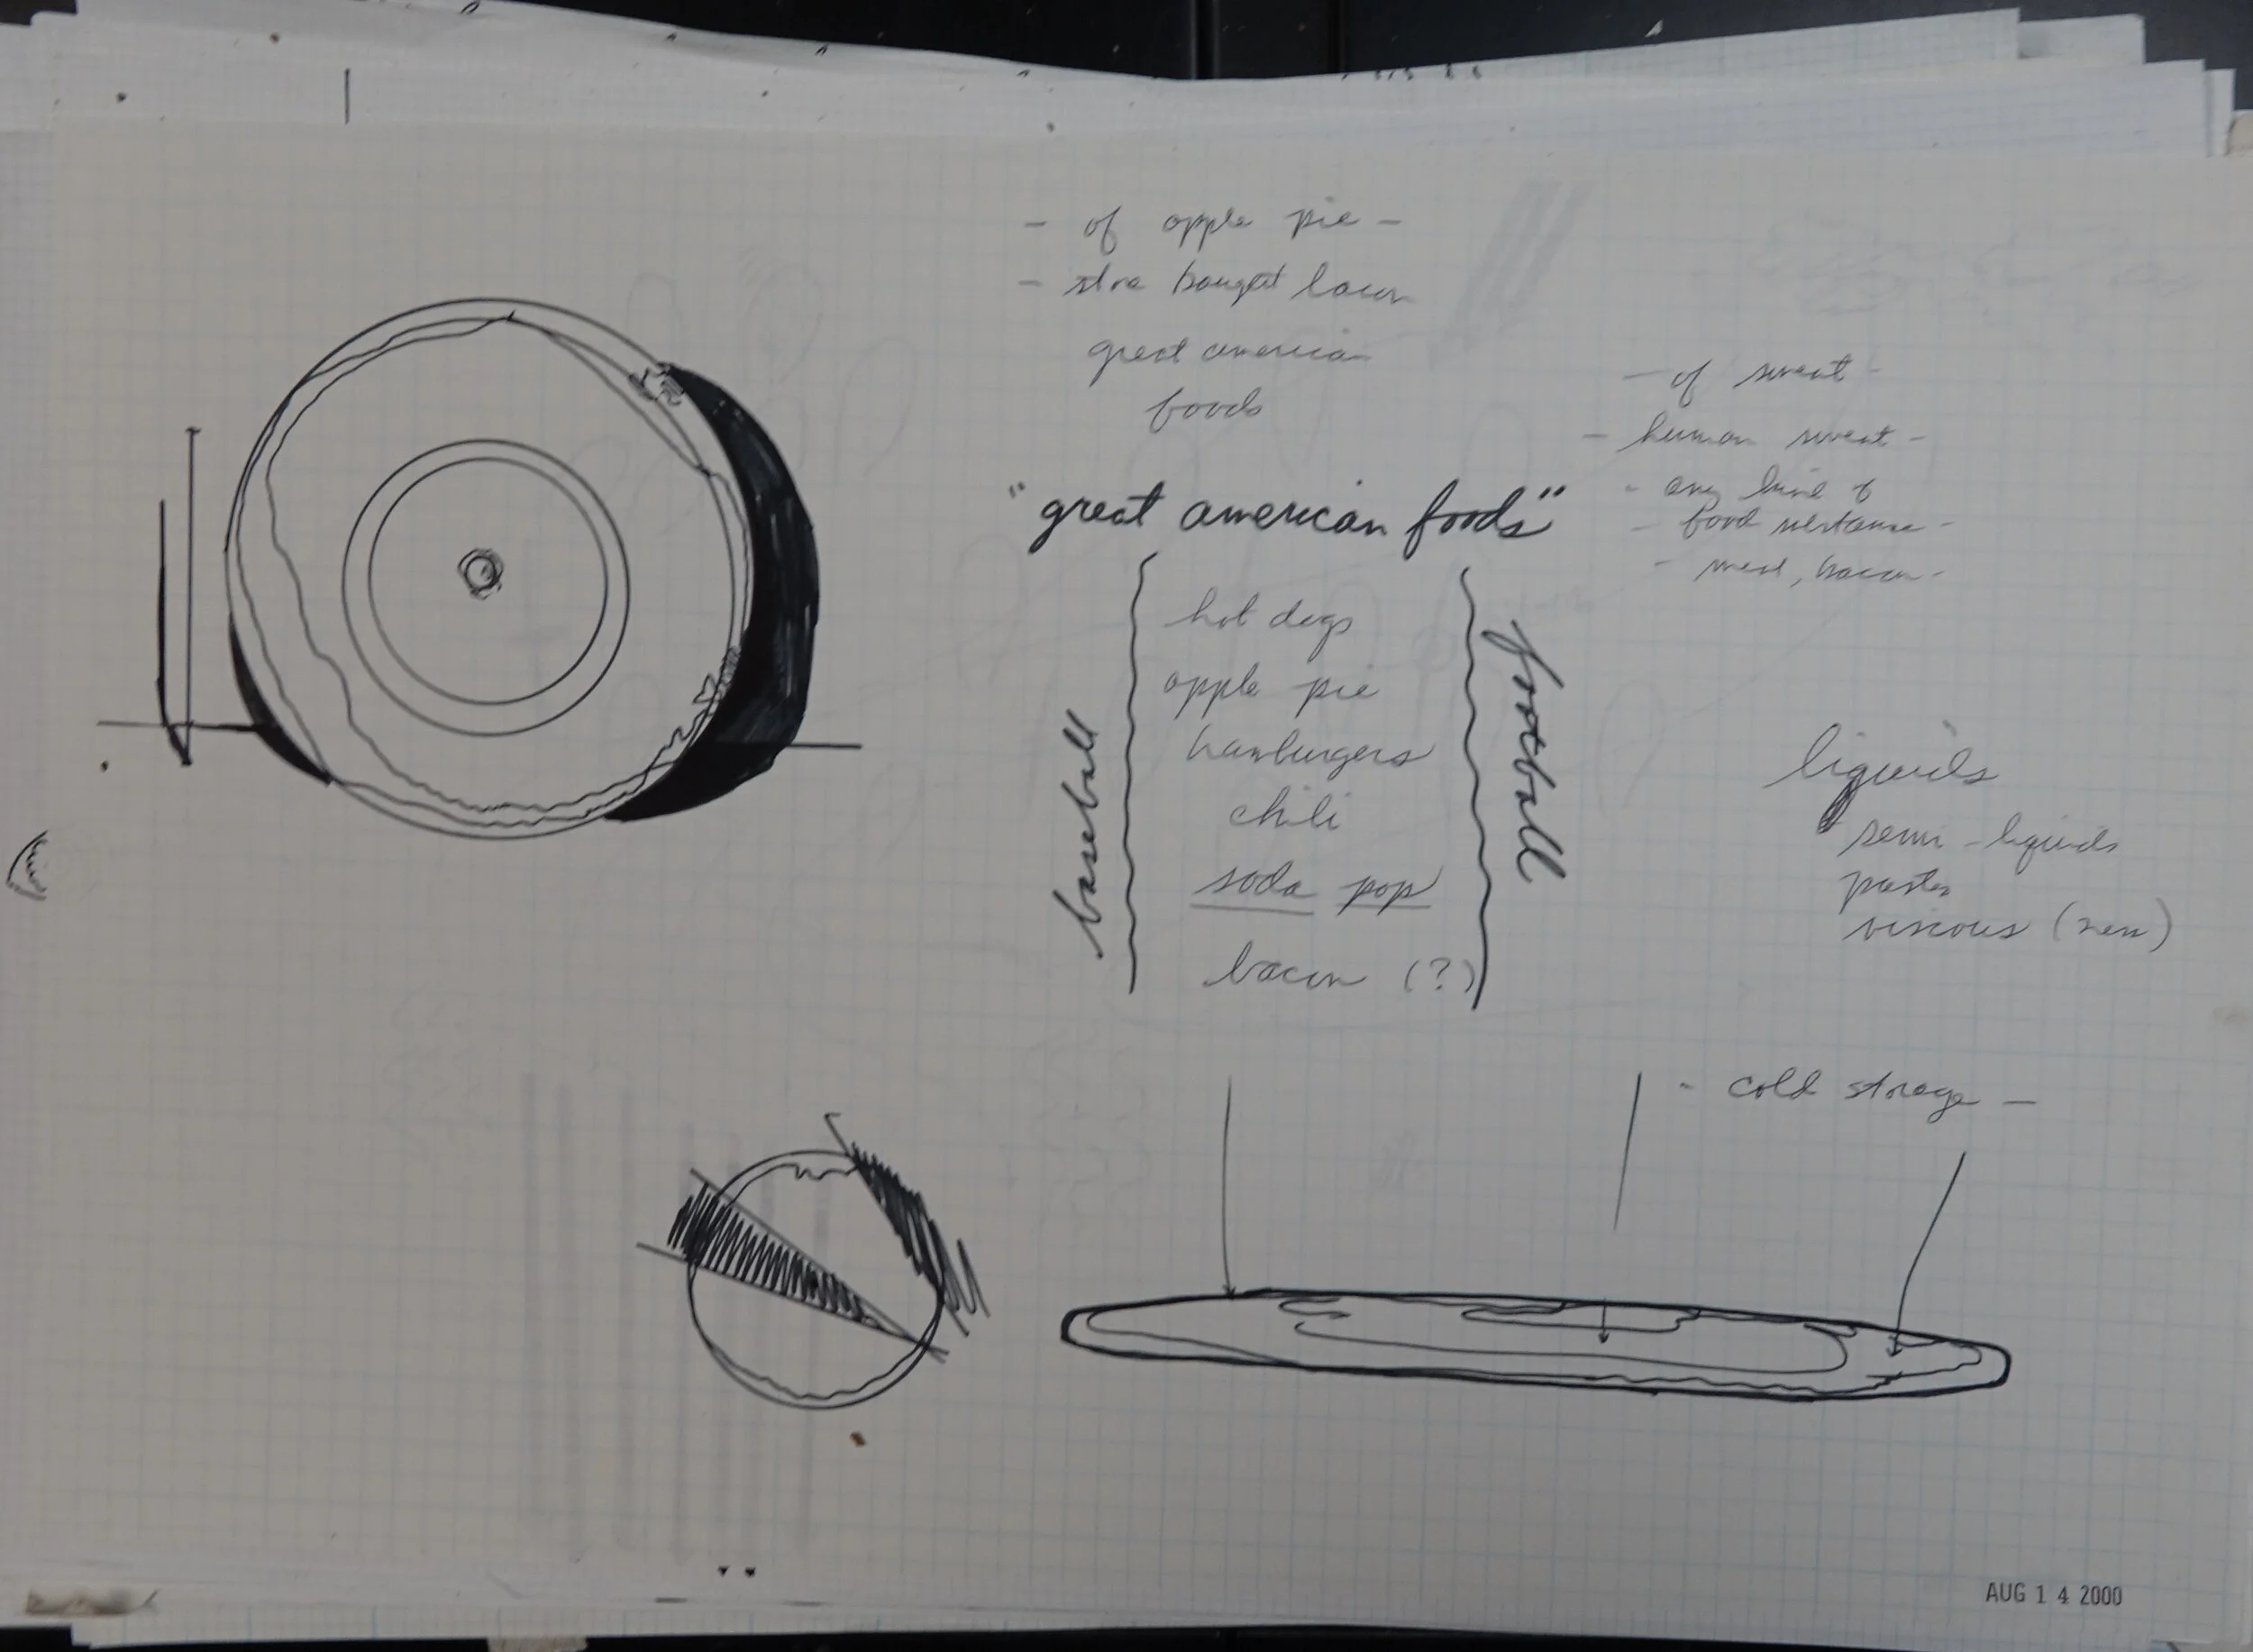 - of apple pie -
- store bought bacon
great american
foods
- of sweat -
- human sweat -
- any kind of
- food substance -
- meat, bacon -
"great american foods"
baseball
hot dogs
apple pie
hamburgers
chili
soda pop
bacon (?)
football
liquids
semi-liquids
pastes
viscous (ness)
- cold storage -
AUG 14 2000